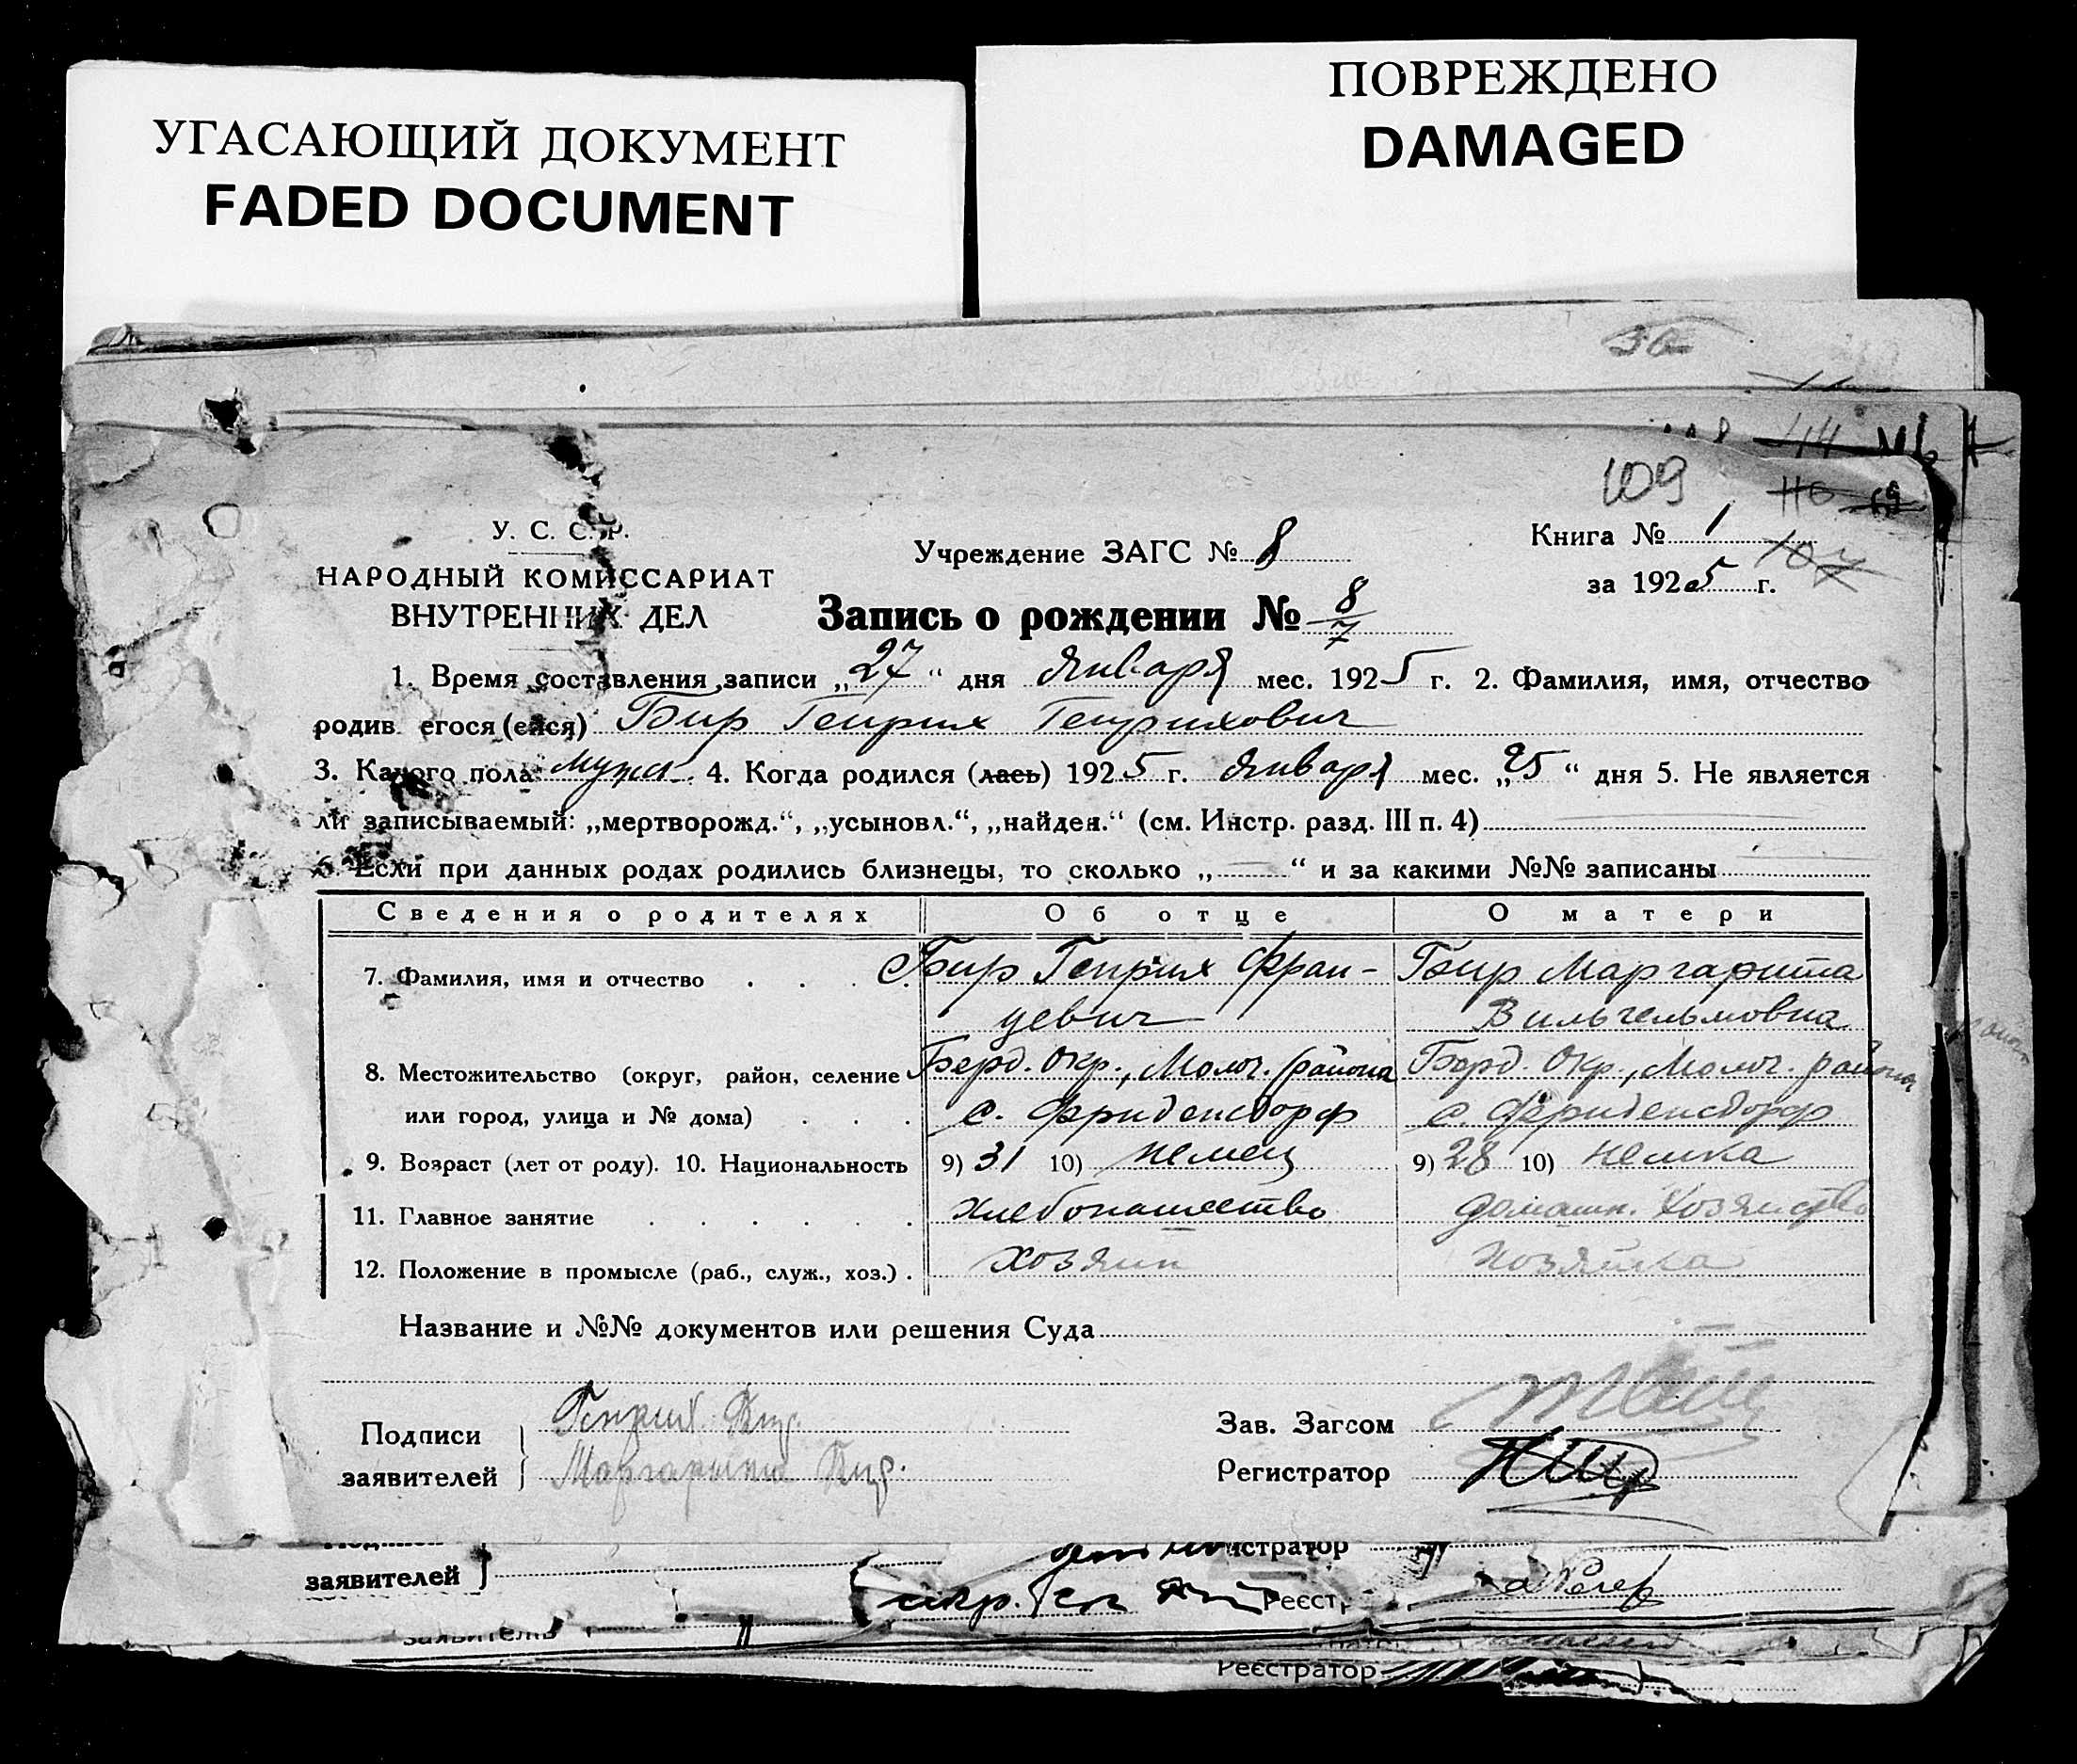 УГАСАЮЩИЙ ДОКУМЕНТ
FADED DOCUMENT
ПОВРЕЖДЕНО
DAMAGED
109
У. С. С. Р.
НАРОДНЫЙ КОМИССАРИАТ
ВНУТРЕННИХ ДЕЛ
Учреждение ЗАГС № 8
Книга № 1
за 1925 г.
107
Запись о рождении № 8/7
1. Время составления записи „27“ дня Января мес. 1925 г. 2. Фамилия, имя, отчество
родив егося (ейся) Бир Генрих Генрихович
3. Какого пола мужск. 4. Когда родился (лась) 1925 г. Января мес. „25“ дня 5. Не является
ли записываемый: „мертворожд.“, „усыновл.“, „найден.“ (см. Инстр. разд. III п. 4)
6. Если при данных родах родились близнецы, то сколько „ “ и за какими №№ записаны
Сведения о родителях Об отце О матери
7. Фамилия, имя и отчество Бир Генрих Фран- Бир Маргарита
цевич Вильгельмовна
8. Местожительство (округ, район, селение Берд. Окр., Молоч. района Берд. Окр., Молоч. района
или город, улица и № дома) с. Фриденсдорф с. Фриденсдорф
9. Возраст (лет от роду). 10. Национальность 9) 31 10) немец 9) 28 10) немка
11. Главное занятие хлебопашество домашн. хозяйство
12. Положение в промысле (раб., служ., хоз.) хозяин хозяйка
Название и №№ документов или решения Суда
Подписи
заявителей
Генрих Бир
Маргарита Бир.
Зав. Загсом
Регистратор
истратор
заявителей
Реєст
заявитель
Реєстратор